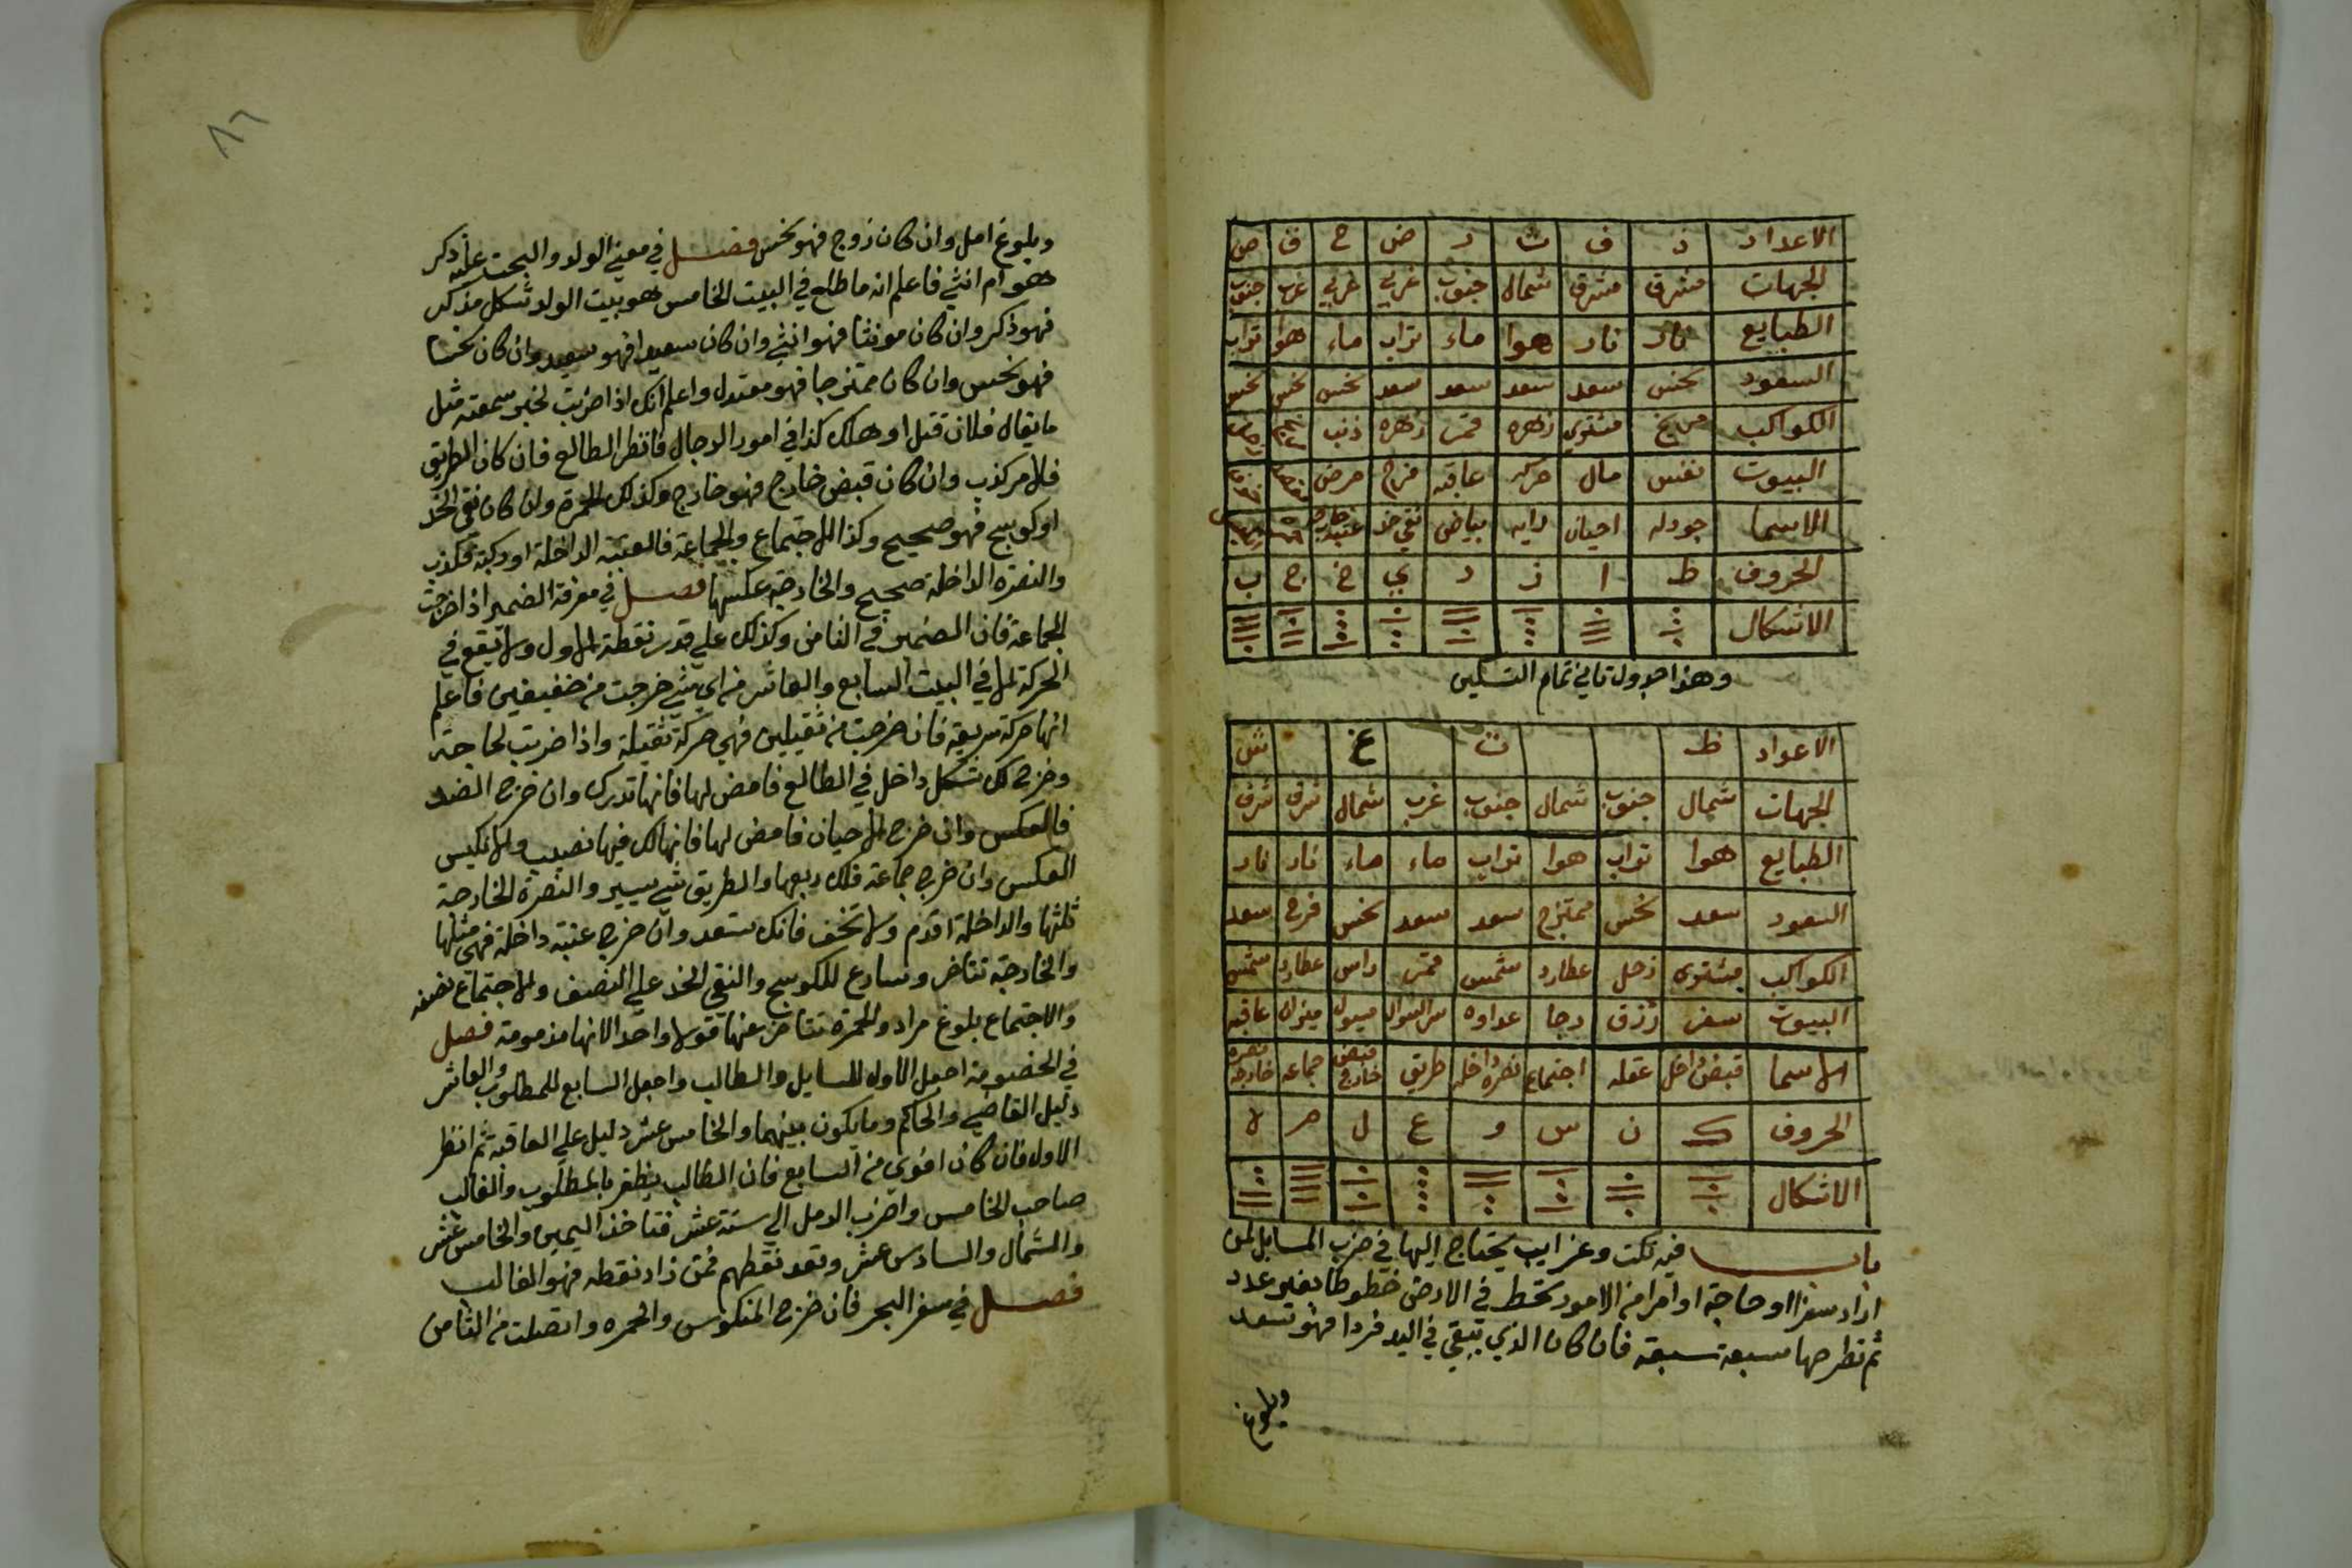 الاعداد ذ ف ث د ض ح ق ص
الجهات مشرق مشرق شمال جنوب غربي غربي غرب جنوب
الطبايع نار نار هوا ماء تراب ماء هوا تراب
السعود نحس سعد سعد سعد سعد نحس نحس نحس
الكواكب مريخ مشتري زهره قمر زهره ذنب
البيوت نفس مال حركه عاقبه فرح مرض
الاسما جودله احيان رايه بياض نقي خد عتبه خارجه
الحروف ط ا ز د ي خ ح ب
الاشكال
وهذا جدول ثاني تمام التسكين
الاعداد ظ ت غ ش
الجهات شمال جنوب شمال جنوب غرب شمال شرق شرق
الطبايع هوا تراب هوا تراب ماء ماء نار نار
السعود سعد نحس ممتزج سعد سعد نحس فرح سعد
الكواكب مشتري زحل عطارد شمس قمر راس عطارد شمس
البيوت سفر رزق رجا عداوه ميزان عاقبه
الاسما قبض داخل عقله اجتماع نصره داخله طريق قبض خارج جماعه نصره خارجه
الحروف ك ن س و ع ل م لا
الاشكال
باب فيه نكت وغرايب يحتاج اليها في ضرب المسايل لمن
اراد سفرا او حاجة او امرا من الامور تخط في الارض خطوطا بغير عدد
ثم تطرحها سبعة سبعة فان كان الذي تبقي في اليد فردا فهو تسعد
وبلوغ
٨٦
وبلوغ امل وان كان زوج فهو نحس فصل في معني الولد والبحث عليه ذكر
هو ام انثي فاعلم انه ما طلع في البيت الخامس هو بيت الولد شكل مذكر
فهو ذكر وان كان مونثا فهو انثي وان كان سعيدا فهو سعيد وان كان نحسا
فهو نحس وان كان ممتزجا فهو معتدل واعلم انك اذا ضربت لخبر سمعته مثل
ما يقال فلان قتل او هلك كذا في امور الرجال فانظر الطالع فان كان الطريق
فلامر كذب وان كان قبض خارج فهو خارج وكذلك الحمرة وان كان نقي الخد
او كوسج فهو صحيح وكذا الاجتماع والجماعة فالعتبة الداخلة او ركبة فكذب
والنصره الداخلة صحيح والخارجة عكسها فصل في معرفة الضمير اذا خرجت
الجماعة فان الضمير في الثامن وكذلك علي قدر نقطة الاول ولا تقع في
الحركة الا في البيت السابع والعاشر من اي شي خرجت من خفيفين فاعلم
انها حركة سريعة فان خرجت من ثقيلين فهي حركة ثقيلة واذا ضربت لحاجة
وخرج لك شكل داخل في الطالع فامض لها فانها تدرك وان خرج الضد
فالعكس وان خرج الاحيان فامض لها فانها لك فيها نصيب والانكيس
العكس وان خرج جماعة فلك ربعها والطريق شي يسير والنصرة الخارجة
ثلثها والداخلة اقدم ولا تخف فانك تسعد وان خرج عتبة داخلة فهي مثلها
والخارجة تتاخر وتسارع للكوسج والنقي الخد علي النصف والاجتماع نصفه
والاجتماع بلوغ مراد والحمرة تتاخر عنها قولا واحد لانها مذمومة فصل
في الخصومة اجعل الاول للسايل والطالب واجعل السابع للمطلوب والعاشر
دليل القاضي والحاكم وما يكون بينهما والخامس عشر دليل علي العاقبه ثم انظر
الاول فان كان اقوي من السابع فان الطالب يظفر بالمطلوب والغالب
صاحب الخامس واضرب الرمل الي ستة عشر فتاخذ اليمين والخامس عشر
والشمال والسادس عشر وتعد نقطهم فمن زاد نقطه فهو الغالب
فصل في سفر البحر فان خرج المنكوس والحمره واتصلت من الثامن